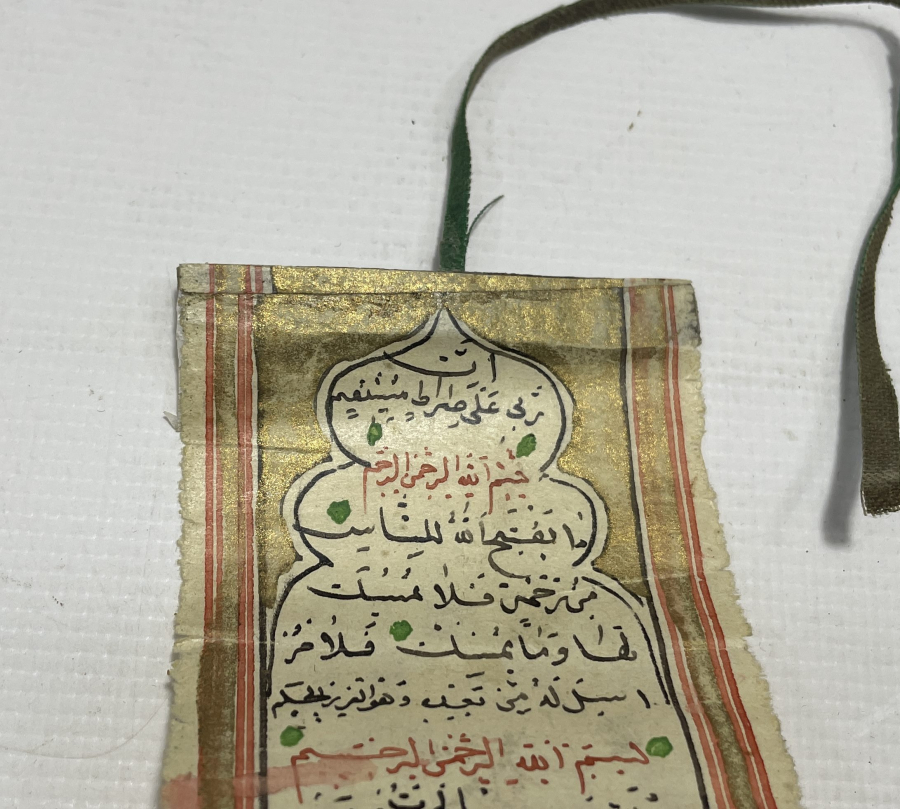 اِنَّ
رَبّى عَلَى صِرَاطٍ مُسْتَقيم
بِسْمِ اللهِ الرَّحْمٰنِ الرَّحيم
مَا يَفْتَحِ اللهُ لِلنَّاسِ
مِنْ رَحْمَةٍ فَلَا مُمْسِكَ
لَهَا وَمَا يُمْسِكْ فَلَا مُرْ
سِلَ لَهُ مِنْ بَعْدِهِ وَهُوَ الْعَزيزُ الْحَكيم
بِسْمِ اللهِ الرَّحْمٰنِ الرَّحيمِ